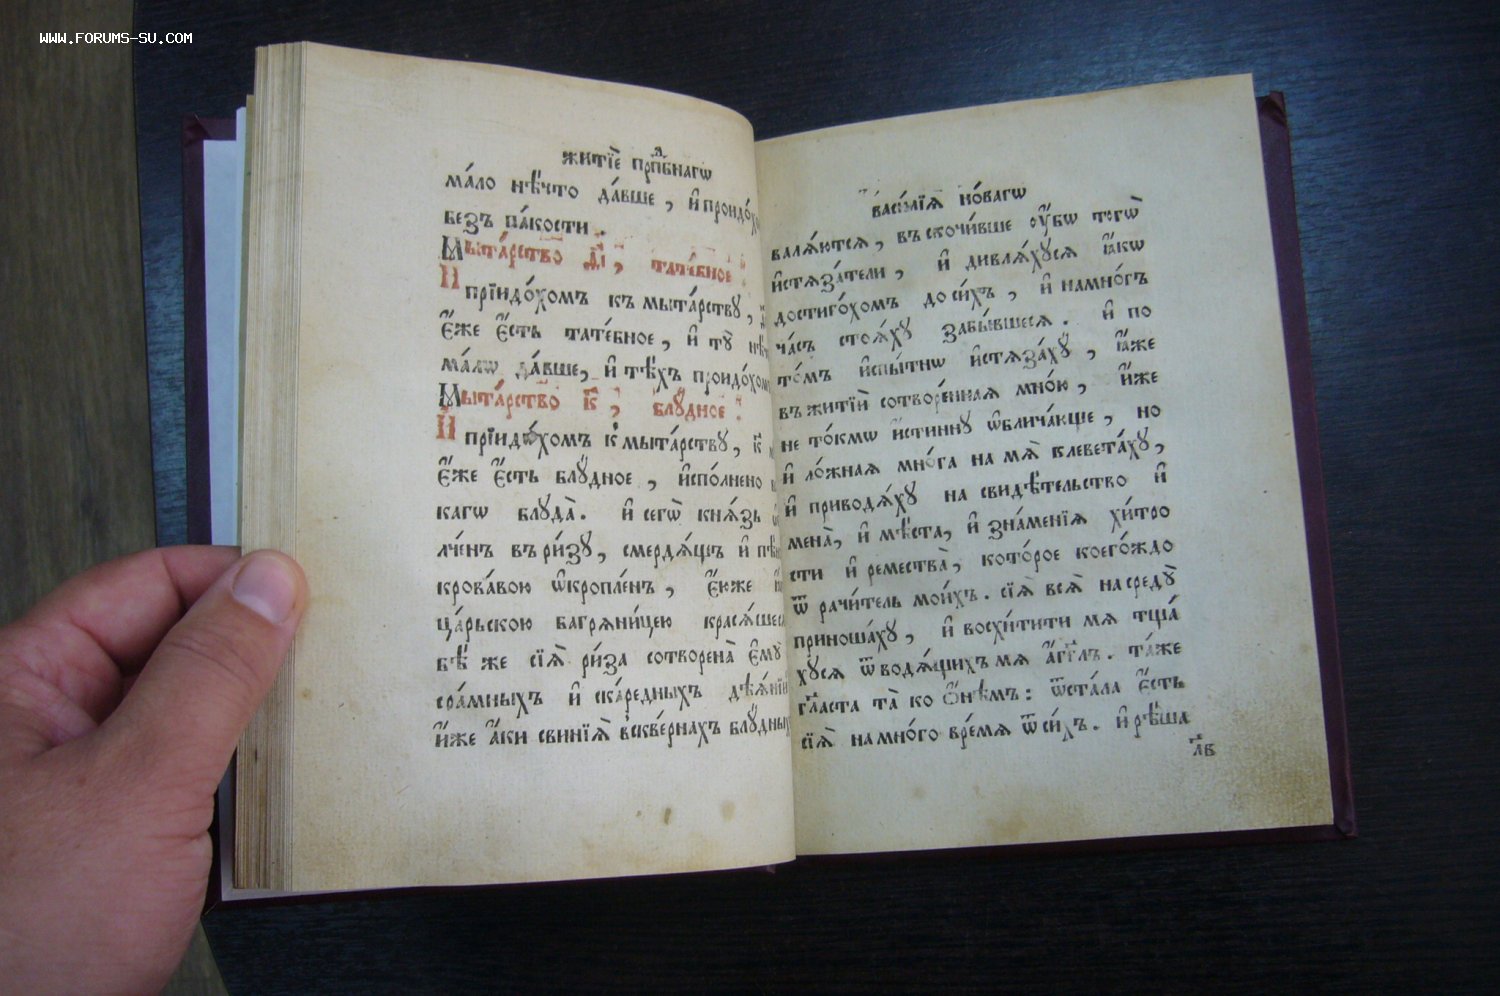 WWW.FORUMS-SU.COM
житїѐ прпⷣбнагѡ
ма́ло нѣ́что да́вше, и҆ проидо́хо
без̾ па́кости.
Мыта́рство д҃і, тате́бное:
И прїидо́хомъ къ мыта́рству,
є҆́же є҆́сть тате́бное, и҆ тꙋ̀ нѣ́
ма́лѡ да́вше, и҆ тѣ́хъ проидо́хомъ
Мыта́рство к҃, блꙋ́дное:
И прїидо́хомъ к̾ мыта́рству, к҃
є҆́же є҆́сть блꙋ́дное, и҆спо́лнено
кагѡ блуда̀. и҆ сегѡ̀ кня́зь
лче́нъ въ ри́зу, смердя́щъ и҆
крова́вою ѡ҆кропле́нъ, є҆́юже
ца́рьскою багряни́цею красѧ́шеся
бѣ́ же сїѧ̀ ри́за сотворена̀ є҆мꙋ̀
сра́мныхъ и҆ ска́редныхъ дѣѧ́нїи
и҆́же а҆́ки свинїѧ̀ в̾скве́рнахъ блꙋ́дны
васи́лїѧ но́вагѡ
валѧ́ютсѧ, въскочи́вше ᲂу҆́бѡ тогѡ̀
и҆стѧза́тели, и҆ дивлѧ́хусѧ ꙗ҆́кѡ
достиго́хомъ до си́хъ, и҆ намно́гъ
ча́съ стоѧ́ху забы́вшесѧ. и҆ по
то́мъ и҆спы́тнѡ и҆стѧза́хꙋ, ꙗ҆́же
въ житїѝ сотворе́нная мно́ю, и҆́же
не то́кмѡ и҆́стинну ѡ҆блича́юще, но
и҆ ло́жная мно́га на мѧ̀ клевета́ху,
и҆ приводѧ́ху на свидѣ́тельство и҆
мена̀, и҆ мѣ́ста, и҆ зна́менїѧ хи́тро
сти и҆ ремества̀, кото́рое коего́ждо
ѿ рачи́тель мои́хъ. сїѧ̀ всѧ̀ на средꙋ̀
приноша́ху, и҆ восхи́тити мѧ тща́
хусѧ ѿ водѧ́щихъ мѧ а҆́гг҃лъ. та́же
гл҃аста та̀ ко ѻ҆́нѣмъ: ѿста́ла є҆́сть
сїѧ̀ на мно́го вре́мѧ ѿ си́хъ. и҆ рѣ́ша
л҃в